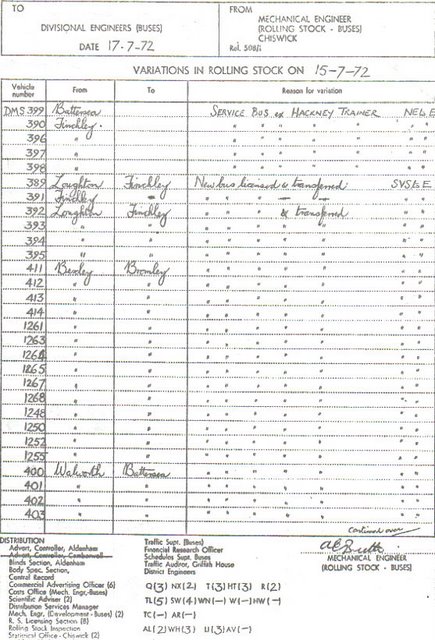 TO
DIVISIONAL ENGINEERS (BUSES)
DATE 17-7-72
FROM
MECHANICAL ENGINEER
(ROLLING STOCK - BUSES)
CHISWICK
Rol. 508/1
VARIATIONS IN ROLLING STOCK ON 15-7-72
Vehicle number From To Reason for variation
DMS 399 Battersea SERVICE BUS ex HACKNEY TRAINER
390 Finchley " " " " "
396 " " " " " "
397 " " " " " "
398 " " " " " "
389 Loughton Finchley New bus licensed & transferred
391 Finchley — " " " — —
392 Loughton Finchley " " " & transferred
393 " " " " " " "
394 " " " " " " "
395 " " " " " " "
411 Bexley Bromley " " " " "
412 " " " " " " "
413 " " " " " " "
414 " " " " " " "
1261 " " " " " " "
1263 " " " " " " "
1264 " " " " " " "
1265 " " " " " " "
1267 " " " " " " "
1268 " " " " " " "
1248 " " " " " " "
1250 " " " " " " "
1252 " " " " " " "
1255 " " " " " " "
400 Walworth Battersea " " " " "
401 " " " " " " "
402 " " " " " " "
403 " " " " " " "
continued over
DISTRIBUTION
Advert. Controller, Aldenham
Advert. Controller, Camberwell
Blinds Section, Aldenham
Body Spec. Section,
Central Record
Commercial Advertising Officer (6)
Costs Office (Mech. Engr.-Buses)
Scientific Adviser (2)
Distribution Services Manager
Mech. Engr. (Development - Buses) (2)
R. S. Licensing Section (8)
Rolling Stock Inspection
Statistical Office - Chiswick (2)
Traffic Supt. (Buses)
Financial Research Officer
Schedules Supt. Buses
Traffic Auditor, Griffith House
District Engineers
Q(3) NX(2) T(3) HT(3) R(2)
TL(5) SW(4) WN(—) W(—) HW(—)
TC(—) AR(—)
AL(2) WH(3) U(3) AV(—)
MECHANICAL ENGINEER
(ROLLING STOCK - BUSES)